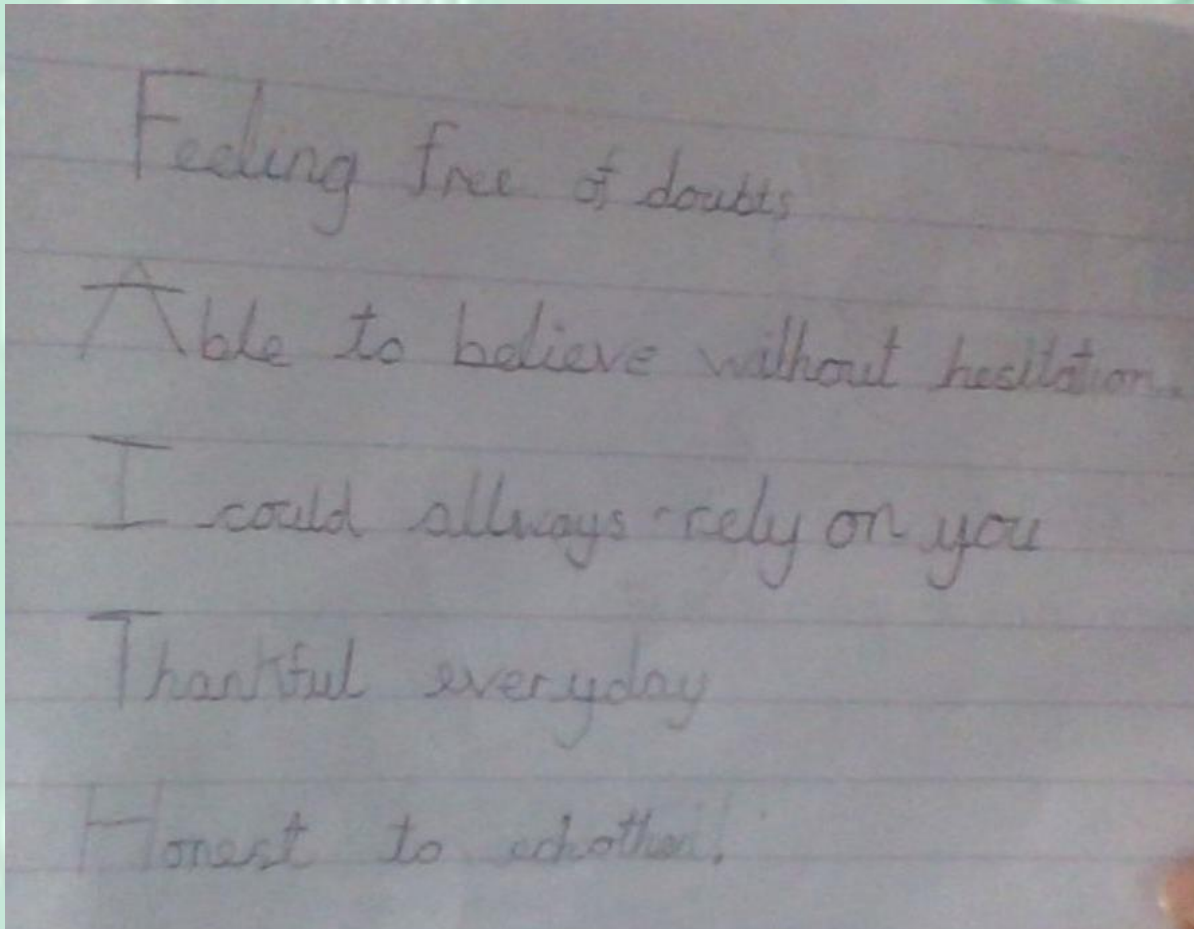 Feeling free of doubts
Able to believe without hesitation.
I could allways rely on you
Thankful everyday
Honest to echother!